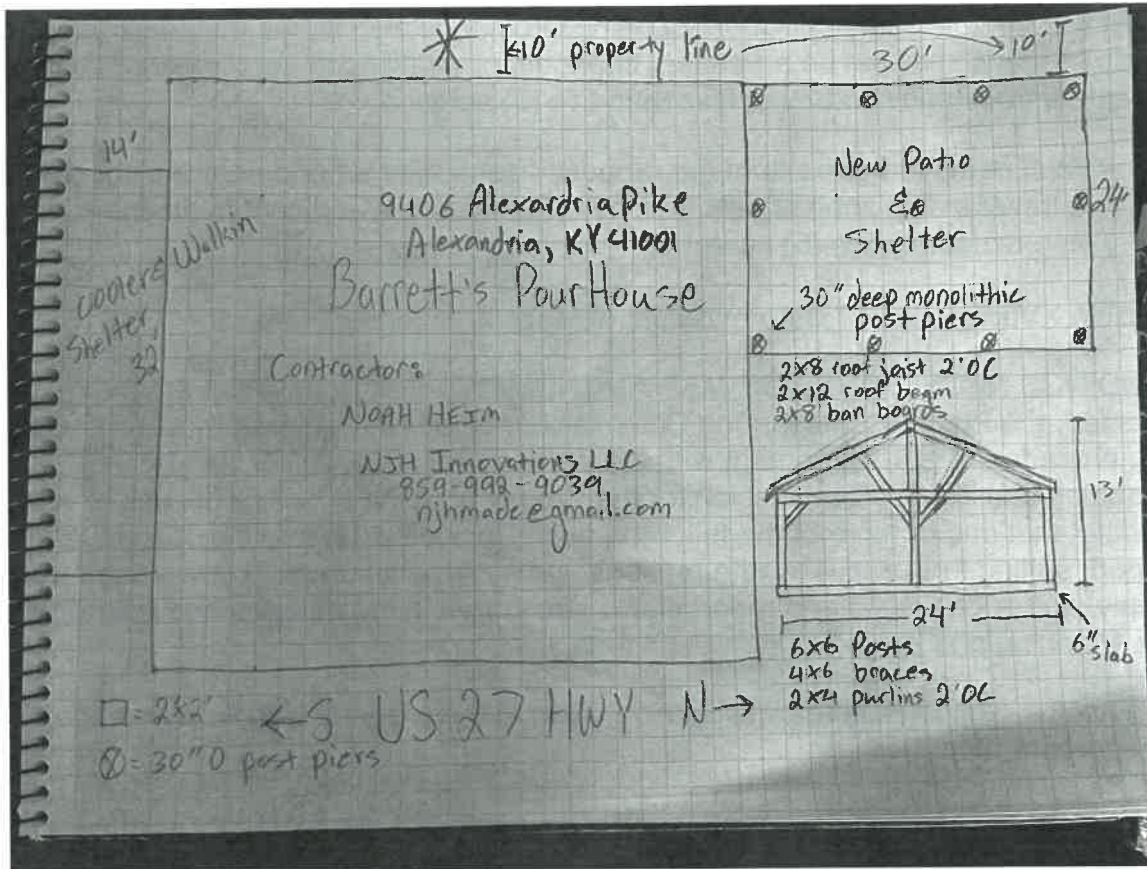 <10' property line 10'
30'
14'
Walkin
coolers
Shelter
32'
9406 Alexardria Pike
Alexandria, KY 41001
Barrett's PourHouse
Contractor:
NOAH HEIM
NJH Innovations LLC
859-992-9039
njhmade@gmail.com
New Patio
&
Shelter
24'
30" deep monolithic
post piers
2x8 roof joist 2' OC
2x12 roof beam
2x8 ban boards
13'
24'
6" slab
6x6 Posts
4x6 braces
2x4 purlins 2' OC
= 2x2'
←S US 27 HWY N→
= 30" D post piers